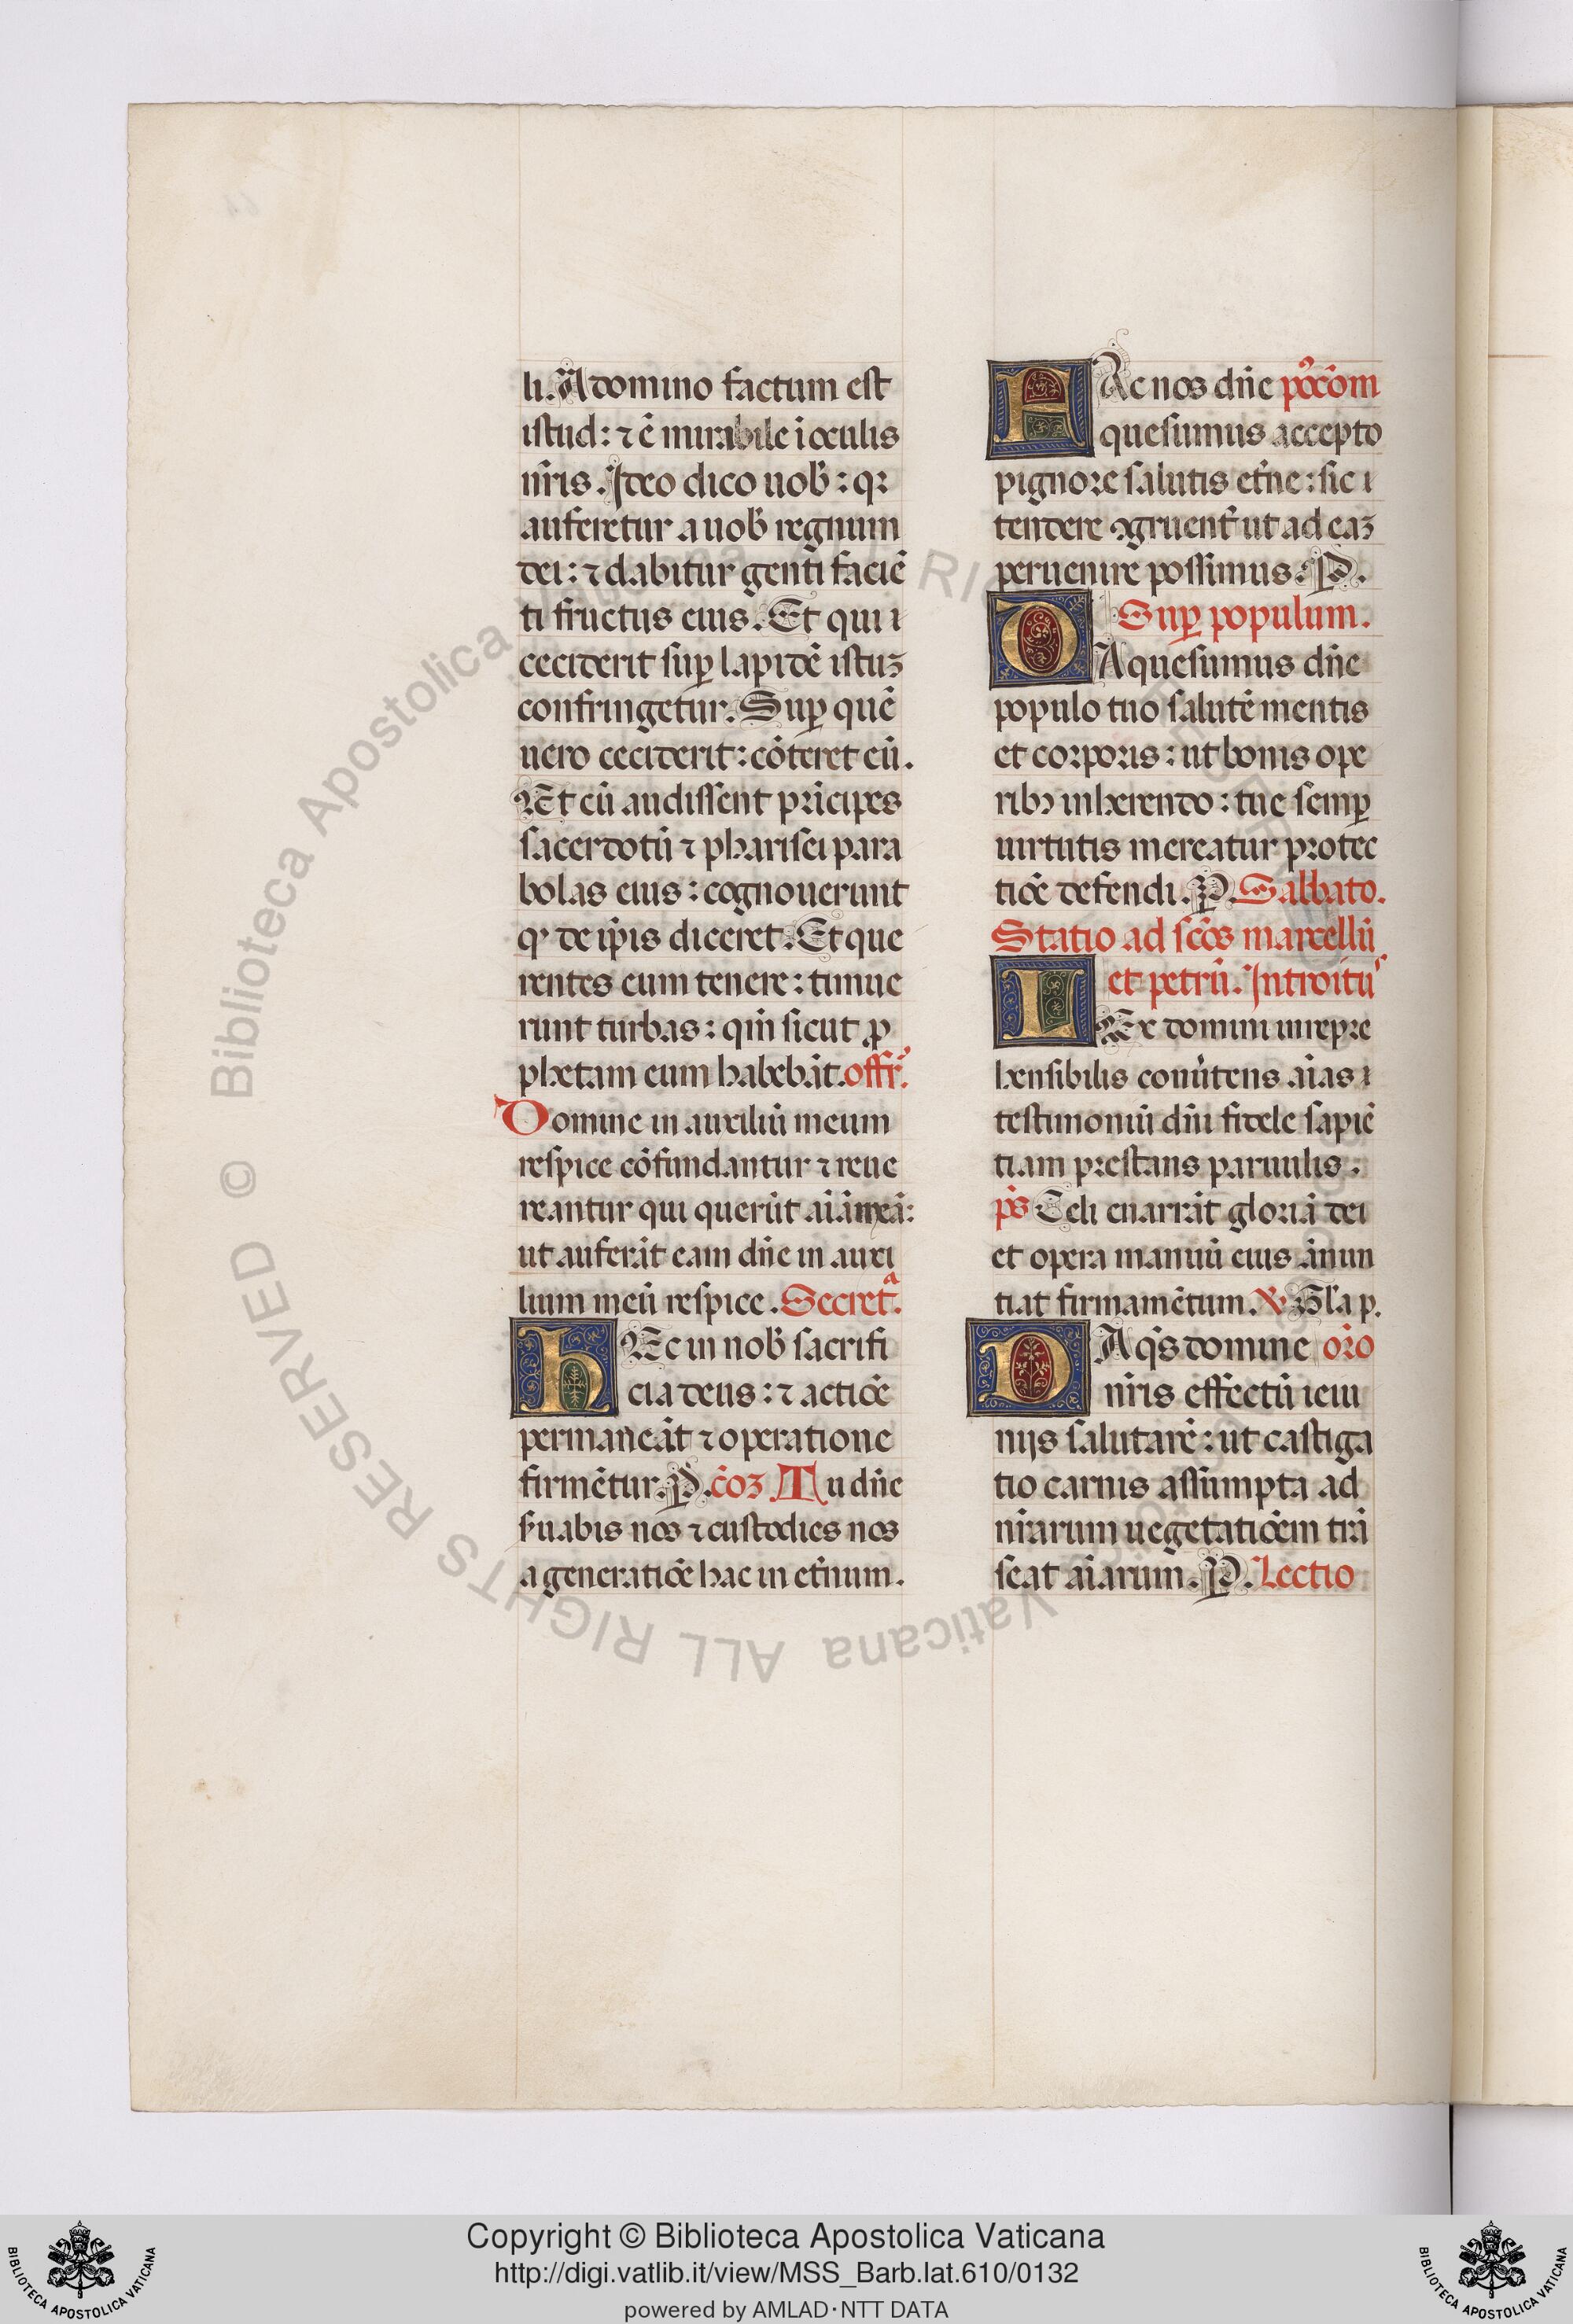 li. A domino factum est
istud: ⁊ ē mirabile i oculis
nr̄is. Ideo dico uob̄: qꝛ
auferetur a uob̄ regnum
dei: ⁊ dabitur genti faciē
ti fructus eius. Et qui i
ceciderit suꝑ lapidē istuꝫ
confringetur. Suꝑ quē
uero ceciderit: cōteret eū.
Et cū audissent pricipes
sacerdotū ⁊ pharisei para
bolas eius: cognouerunt
q' de ip̄is diceret. Et que
rentes eum tenere: timue
runt turbas: qm̄ sicut ꝓ
phetam eum habebāt. offr̄.
Domine in auxiliū meum
respice cōfundantur ⁊ reue
reantur qui querūt aīā meā:
ut auferāt eam dn̄e in auxi
lium meū respice. Secretᵃ.
HEc in nob̄ sacrifi
cia deus: ⁊ actiōe
permaneāt ⁊ operatione
firmētur. P. cōꝫ Tu dn̄e
s̄uabis nos ⁊ custodies nos
a generatiōe hac in et̄num.
FAc nos dn̄e p̄ꝯcōm
quesumus accepto
pignore salutis et̄ne: sic i
tendere ꝯgruent̄ ut ad eaꝫ
peruenire possimus. P.
Suꝑ populum.
DA quesumus dn̄e
populo tuo salutē mentis
et corporis: ut bonis ope
ribꝫ inherendo: tue semꝑ
uirtutis mereatur protec
tiōe defendi. P. Sabbato.
Statio ad sc̄os marcellū
et petrū. Introitus
LEx domini irrepre
hensibilis conūtens aīas i
testimoniū dn̄i fidele sapiē
tiam prestans paruulis.
ps̄ Celi enarrāt gloriā dei
et opera manuū eius ānun
tiat firmamētum. ℣ Gl̄a p.
DA qs̄ domine or̄o
nr̄is effectū ieiu
nijs salutarē: ut castiga
tio carnis assumpta ad
nr̄arum uegetatiōem trā
seat aīarum. P. Lectio
© Biblioteca Apostolica Vaticana ALL RIGHTS RESERVED
Copyright © Biblioteca Apostolica Vaticana
http://digi.vatlib.it/view/MSS_Barb.lat.610/0132
powered by AMLAD·NTT DATA
BIBLIOTECA APOSTOLICA VATICANA
BIBLIOTECA APOSTOLICA VATICANA